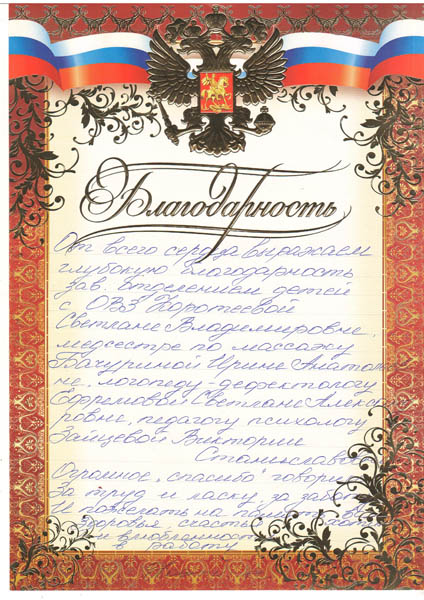 Благодарность
От всего сердца выражаем
глубокую благодарность
зав. отделением детей
с ОВЗ Коротеевой
Светлане Владимировне,
медсестре по массажу
Бачуриной Ирине Анатольев
не, логопеду-дефектологу
Ефремовой Светлане Александ
ровне, педагогу психологу
Зайцевой Виктории
Станиславов
Огромное „спасибо" говорим
За труд и ласку, за забот
И пожелать на
здоровья, счастья
и влюбленност
в работу